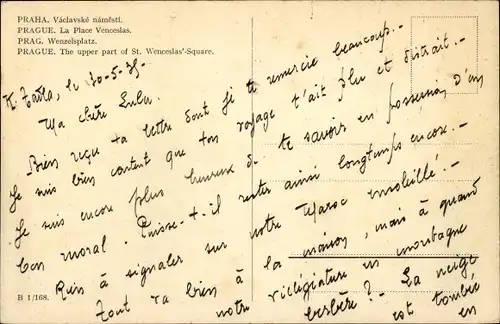 PRAHA. Václavské náměstí.
PRAGUE. La Place Venceslas.
PRAG. Wenzelsplatz.
PRAGUE. The upper part of St. Wenceslas'-Square.
le 30-5-35.-
Ma chère Lulu.
Bien reçu ta lettre dont je te remercie beaucoup.-
Je suis bien content que ton voyage t'ait plu et distrait.-
Je suis encore plus heureux de te savoir en possession d'un
bon moral. Puisse-t-il rester ainsi longtemps encore.-
Rien à signaler sur notre Maroc ensoleillé.-
Tout va bien à la maison, mais à quand
notre villégiature en montagne
berbère?- La neige
est tombée
en
B 1/168.